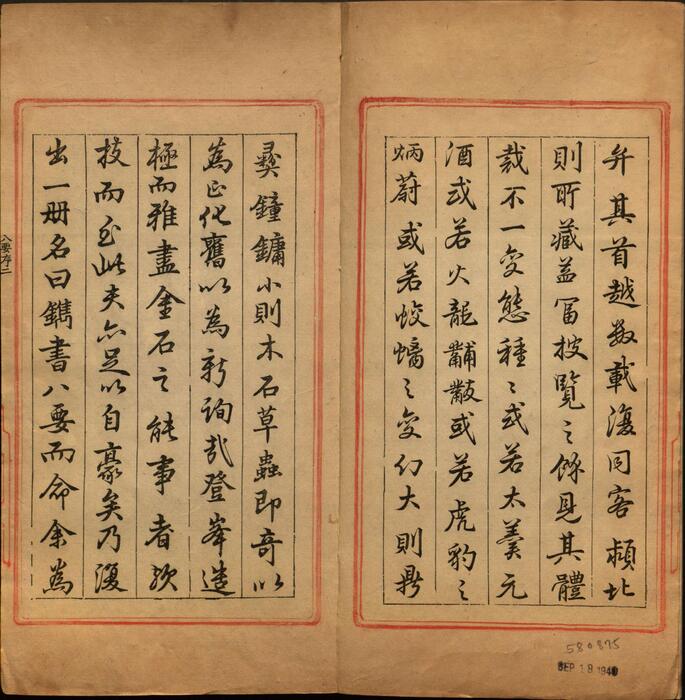 弁其首越数載復同客頼北
則所藏益冨披覽之餘見其體
裁不一变態種〻或若太羹元
酒或若火龍黼黻或若虎豹之
炳蔚或若蛟螭之变幻大則鼎
彝鐘鏞小則木石草蟲即奇以
為正化舊以為新詢哉登峯造
極而雅盡金石之能事者歟
技而至此夫亦足以自豪矣乃復
出一册名曰鐫書八要而命余為
八要序二
580875
SEP 18 1940